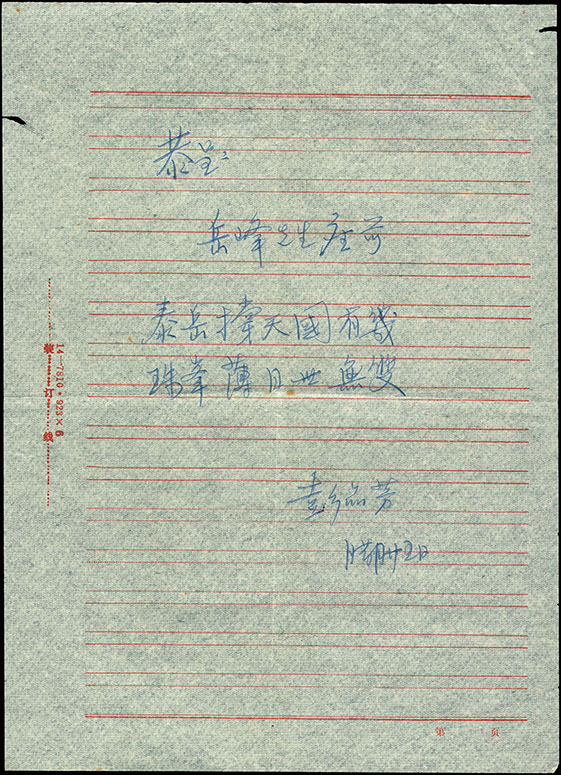 恭呈：
岳峰先生座前
泰岳擎天國有幾
珠峯薄日世無雙
彭品芳
腊月廿五日
14—7810·923×6
装订线
第 页